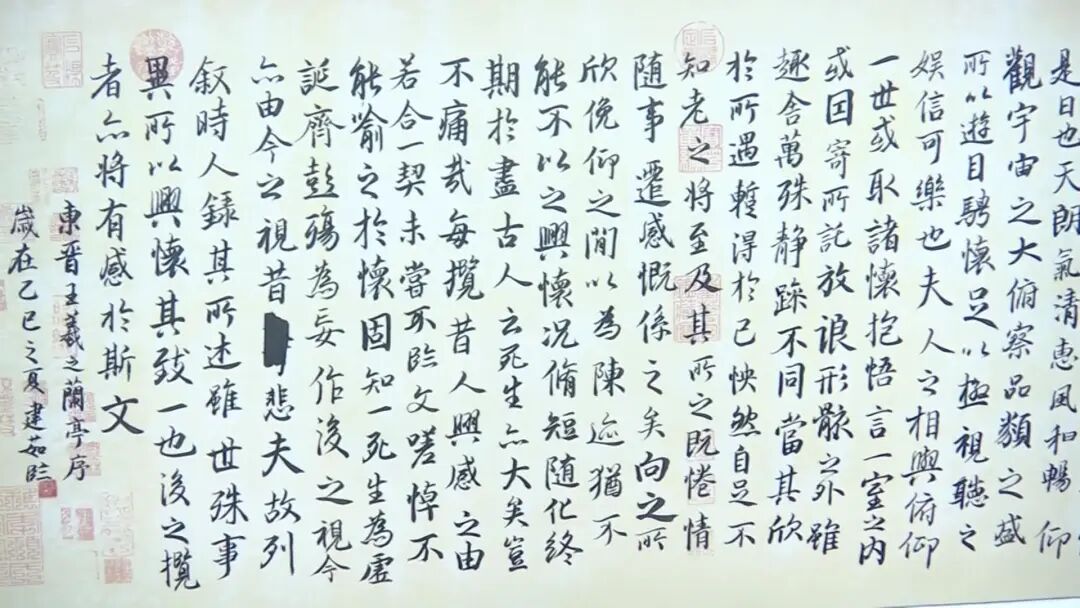 是日也天朗氣清惠風和暢仰
觀宇宙之大俯察品類之盛
所以遊目騁懷足以極視聽之
娛信可樂也夫人之相與俯仰
一世或取諸懷抱悟言一室之內
或因寄所託放浪形骸之外雖
趣舍萬殊静躁不同當其欣
於所遇蹔得於己怏然自足不
知老之將至及其所之既惓情
随事遷感慨係之矣向之所
欣俛仰之閒以為陳迹猶不
能不以之興懷况脩短随化終
期於盡古人云死生亦大矣豈
不痛哉每攬昔人興感之由
若合一契未嘗不臨文嗟悼不
能喻之於懷固知一死生為虛
誕齊彭殤為妄作後之視今
亦由今之視昔悲夫故列
叙時人録其所述雖世殊事
異所以興懷其致一也後之攬
者亦將有感於斯文
東晉王羲之蘭亭序
歲在乙巳之夏建茹臨